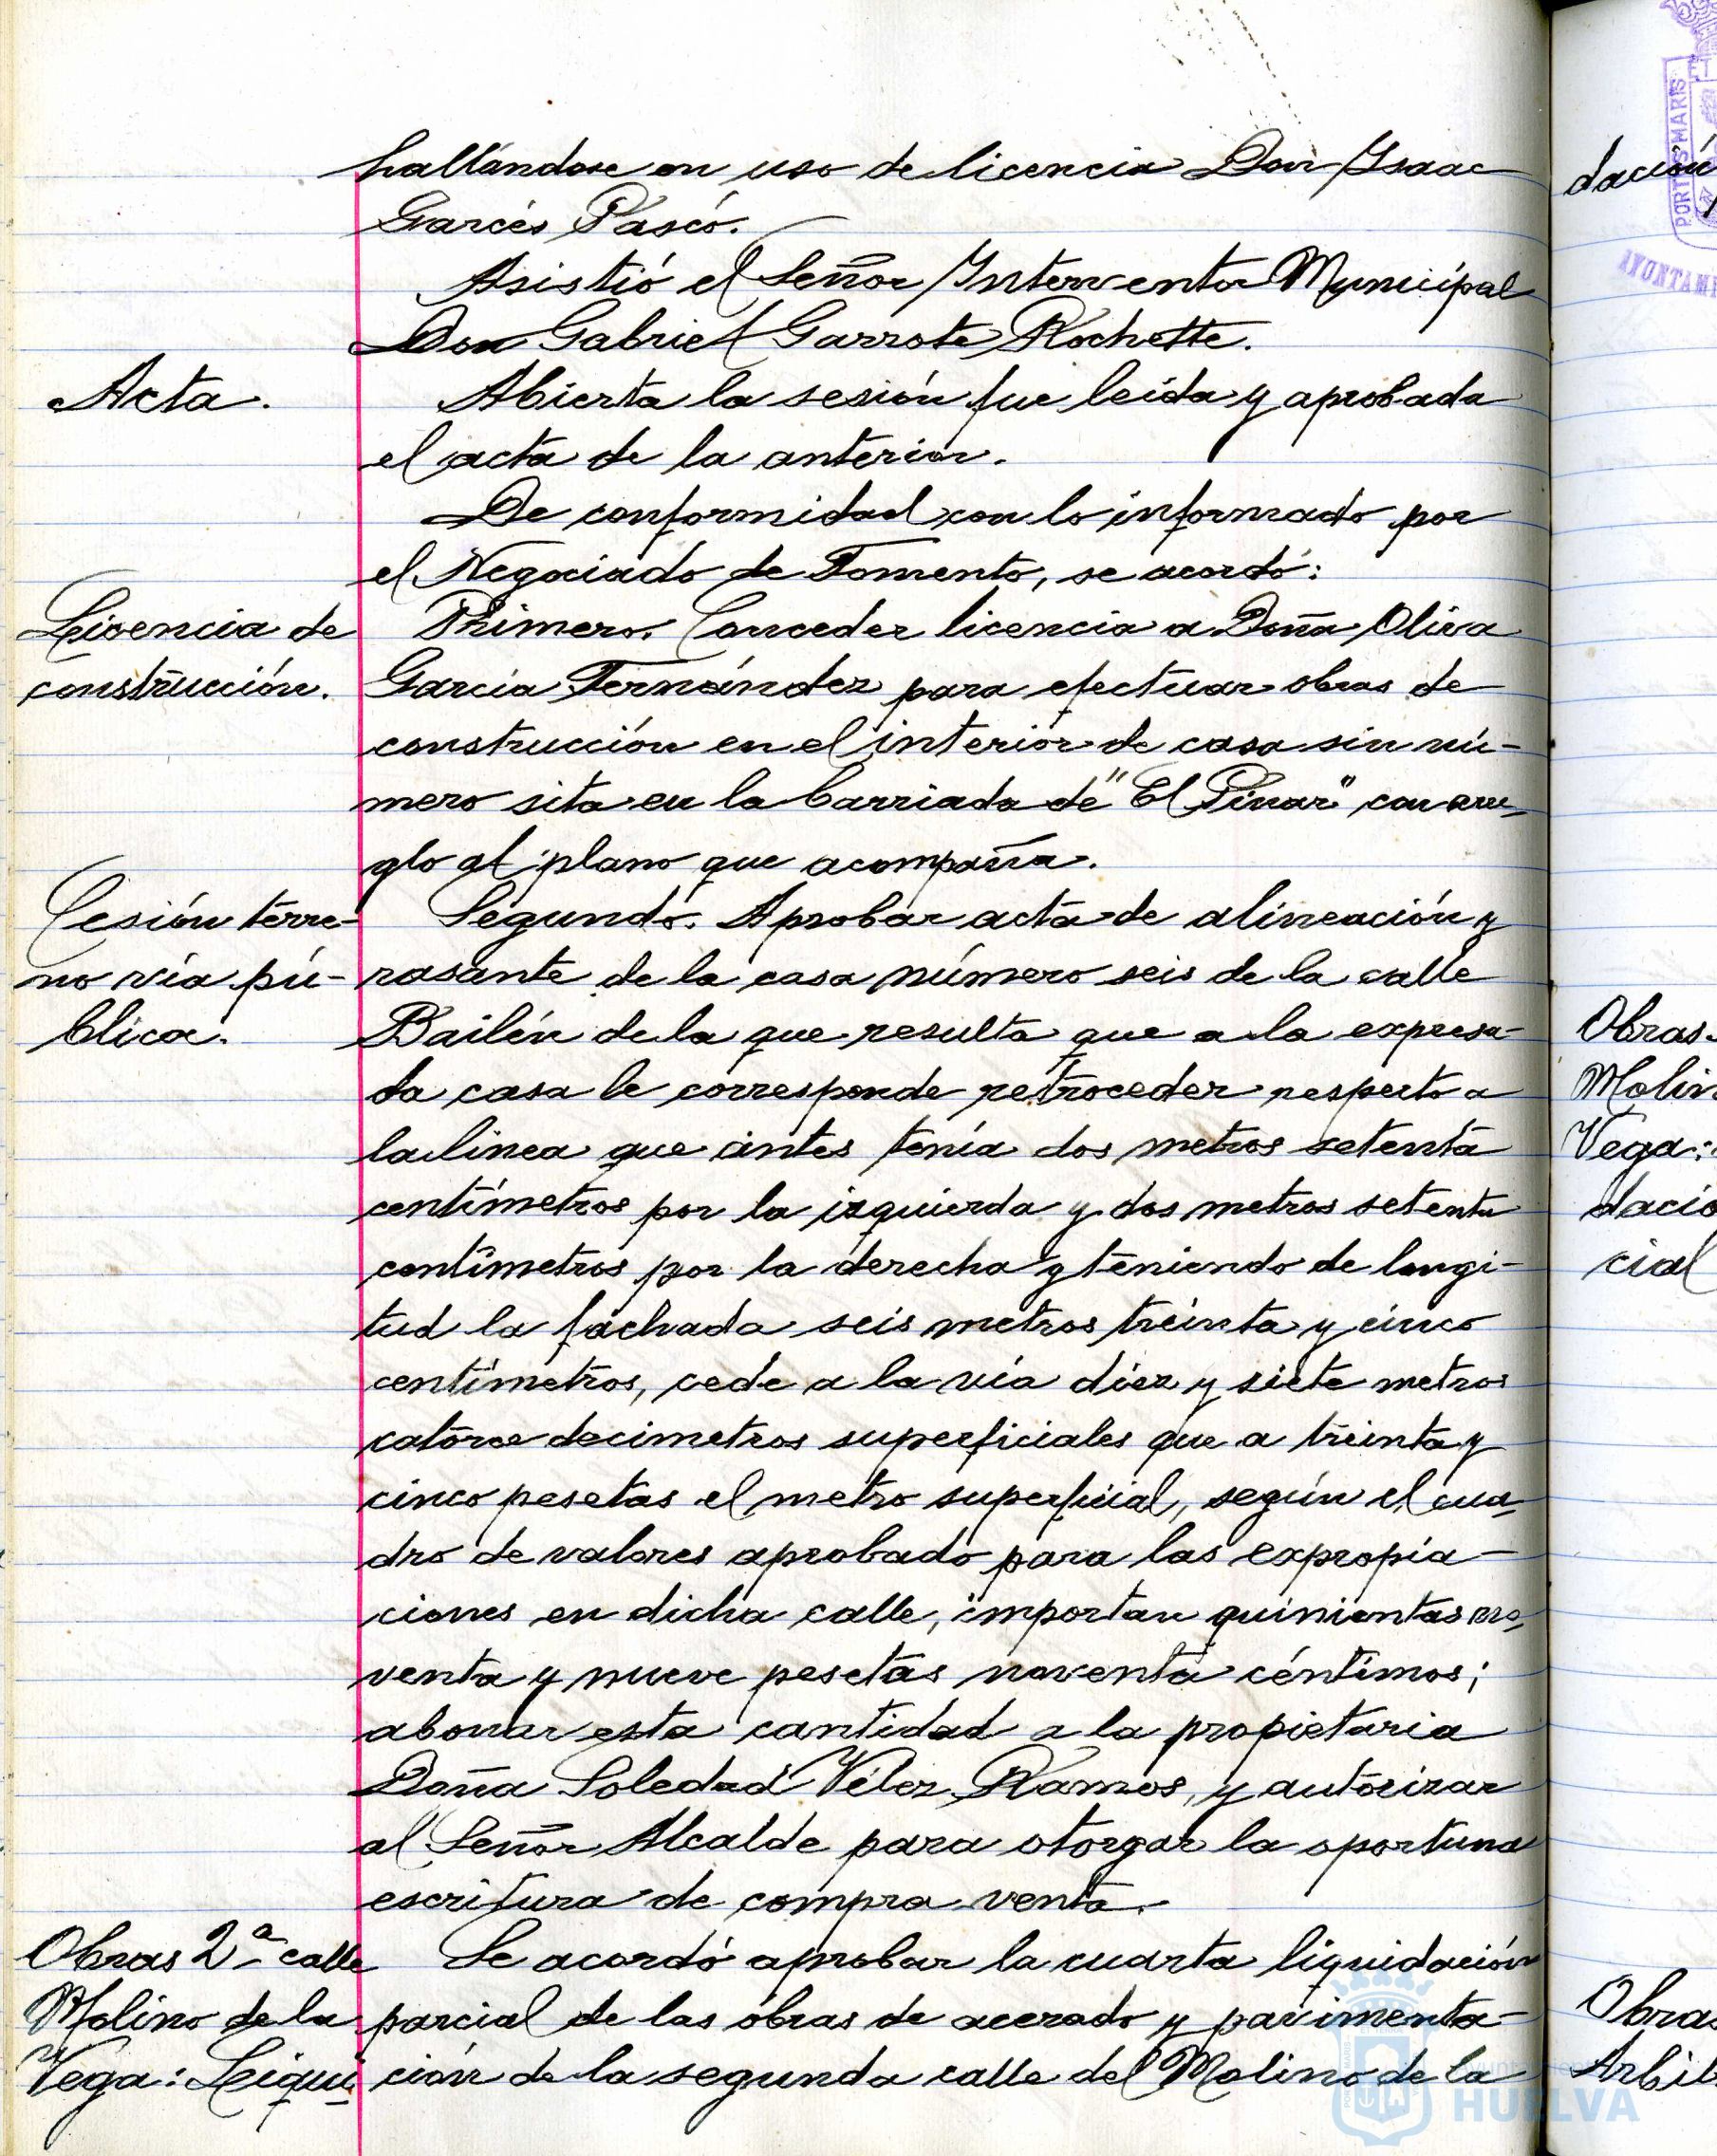 hallándose en uso de licencia Don Isaac
Garcés Pascó.
Asistió el Señor Interventor Municipal
Don Gabriel Garrote Rochette.
Acta.
Abierta la sesión fue leída y aprobada
el acta de la anterior.
De conformidad con lo informado por
el Negociado de Fomento, se acordó:
Licencia de
construcción.
Primero. Conceder licencia a Doña Oliva
García Fernández para efectuar obras de
construcción en el interior de casa sin nú-
mero sita en la barriada de "El Pinar" con arre-
glo al plano que acompaña.
Cesión terre-
no vía pú-
blica.
Segundo. Aprobar acta de alineación y
rasante de la casa número seis de la calle
Bailén de la que resulta que a la expresa-
da casa le corresponde retroceder respecto a
la línea que antes tenía dos metros setenta
centímetros por la izquierda y dos metros setenta
centímetros por la derecha y teniendo de longi-
tud la fachada seis metros treinta y cinco
centímetros, cede a la vía diez y siete metros
catorce decimetros superficiales que a treinta y
cinco pesetas el metro superficial, según el cua-
dro de valores aprobado para las expropia-
ciones en dicha calle, importan quinientas no-
venta y nueve pesetas noventa céntimos;
abonar esta cantidad a la propietaria
Doña Soledad Vélez Ramos, y autorizar
al Señor Alcalde para otorgar la oportuna
escritura de compra venta.
Obras 2ª calle
Molino de la
Vega: Liqui-
Se acordó aprobar la cuarta liquidación
parcial de las obras de acerado y pavimenta-
ción de la segunda calle del Molino de la
dación
PORTUS MARIS
ET
AYUNTAMI
Obras
Molin
Vega:
dació
cial
Obras
Arbit
Ayuntamiento
HUELVA